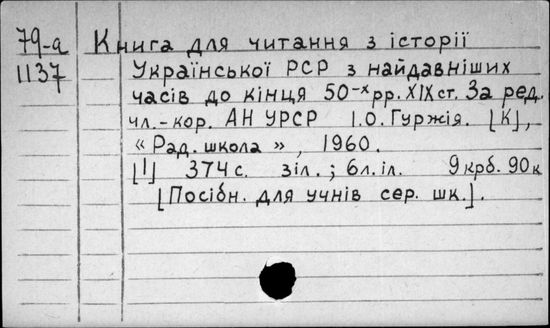 79-а Книга для читання з історії
1137 Української РСР з найдавніших
часів до кінця 50-х рр. XIX ст. За ред.
чл.-кор. АН УРСР І.О. Гуржія. [К],
«Рад. школа», 1960.
[1] 374 с. з іл.; 6 л. іл. 9 крб. 90 к
[Посібн. для учнів сер. шк.].